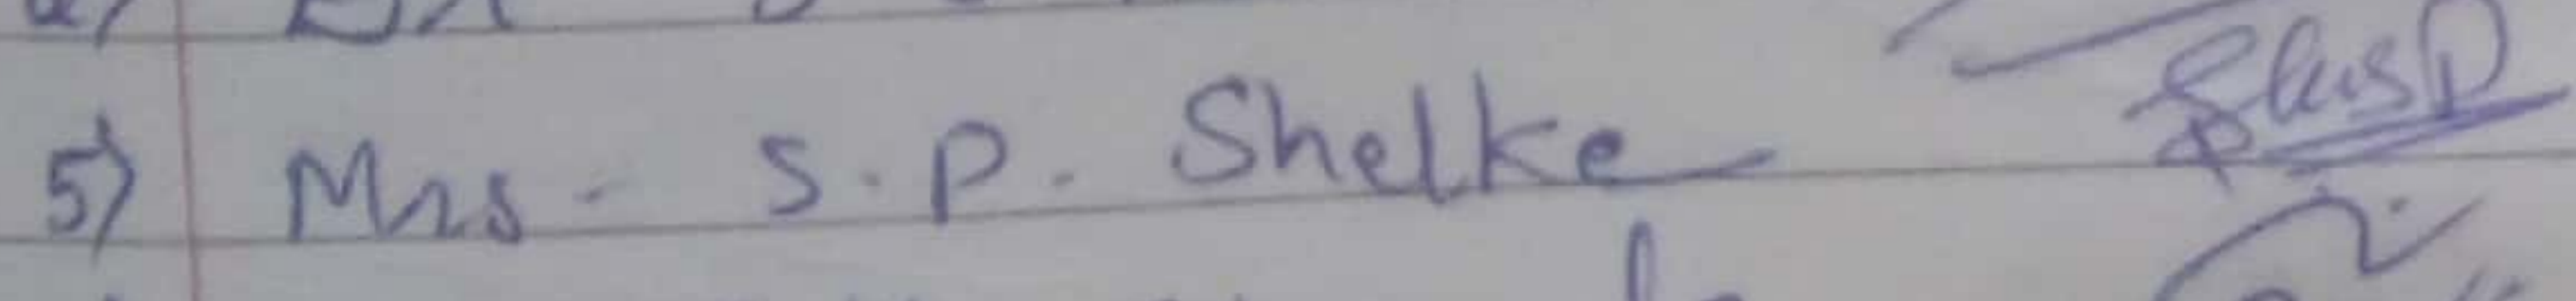 5) Mrs - S. P. Shelke